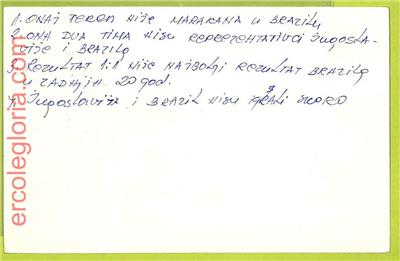 1. ONAJ TEREN NIJE MARAKANA U BRAZILU
2. ONA DVA TIMA NISU REPREZENTATIVCI JUGOSLA-
VIJE I BRAZILA
3. REZULTAT 1:1 NIJE NAJBOLJI REZULTAT BRAZILA
U ZADNJIH 20 GOD.
4. JUGOSLAVIJA I BRAZIL NISU IGRALI SKORO
ercolegloria.com